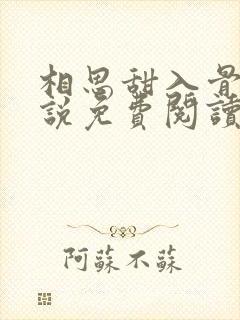 相思甜入骨
說免費閱讀
阿蘇不蘇